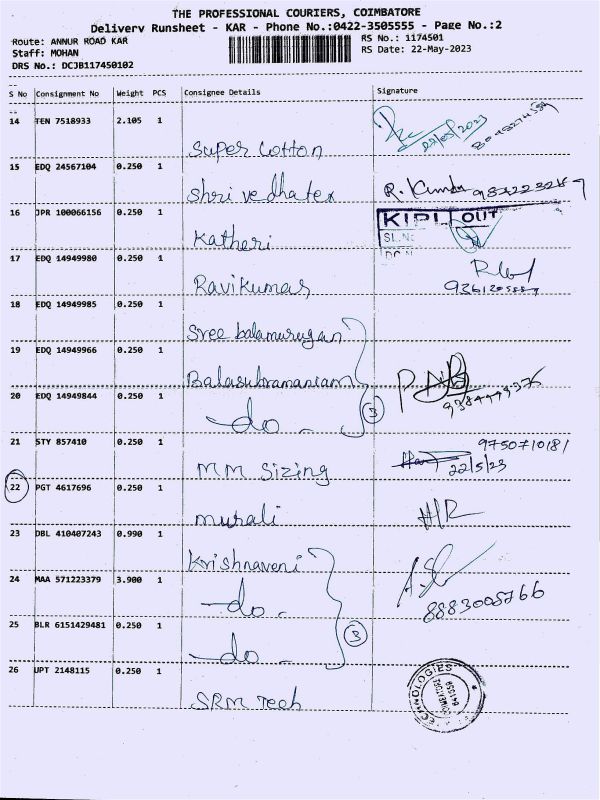 THE PROFESSIONAL COURIERS, COIMBATORE
Delivery Runsheet - KAR - Phone No.:0422-3505555 - Page No.:2
Route: ANNUR ROAD KAR
RS No.: 1174501
Staff: MOHAN
RS Date: 22-May-2023
DRS No.: DCJB117450102
S No Consignment No Weight PCS Consignee Details Signature
14 TEN 7518933 2.105 1
22/05/2023
Super Cotton
15 EDQ 24567104 0.250 1
Shri vedhatex R. Kumar
16 JPR 100066156 0.250 1
KIPL OUT
SL.No
Katheri
17 EDQ 14949980 0.250 1
Ravikumar
18 EDQ 14949985 0.250 1
Sree balamurugan
19 EDQ 14949966 0.250 1
Balasubramaniam
20 EDQ 14949844 0.250 1
do. 3
21 STY 857410 0.250 1
9750710181
MM Sizing 22/5/23
22 PGT 4617696 0.250 1
murali
23 DBL 410407243 0.990 1
Krishnaveni
24 MAA 571223379 3.900 1
do. 8883005766
25 BLR 6151429481 0.250 1
do. 3
26 UPT 2148115 0.250 1
SRM Tech